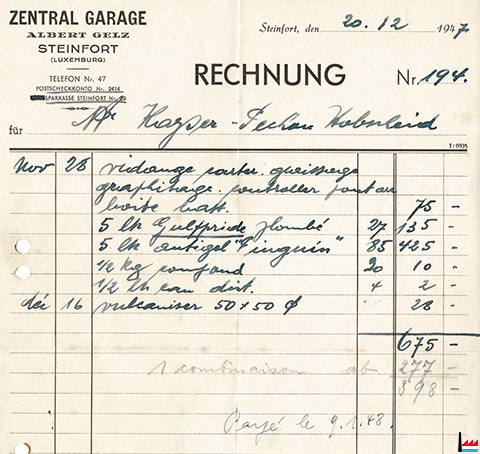 ZENTRAL GARAGE
ALBERT GELZ
STEINFORT
(LUXEMBURG)
TELEFON Nr. 47
POSTSCHECKKONTO Nr. 2414
SPARKASSE STEINFORT Nr.
Steinfort, den 20.12 1947
RECHNUNG Nr. 194.
für Mr Kayser - Pechon Hobscheid
1/0935
Nov 28 vidange carter. graissage
graphitage. controller pont arr
boite batt. 75 -
5 lt Gulfpride plombé 27 135 -
5 lt antigel "Pinguin" 85 425 -
1/2 kg 20 10 -
1/2 lt eau dist. 4 2 -
déc 16 vulcaniser 50 x 50 φ 28 -
675 -
1 combinaison ab 277 -
398 -
Payé le 9.1.48.